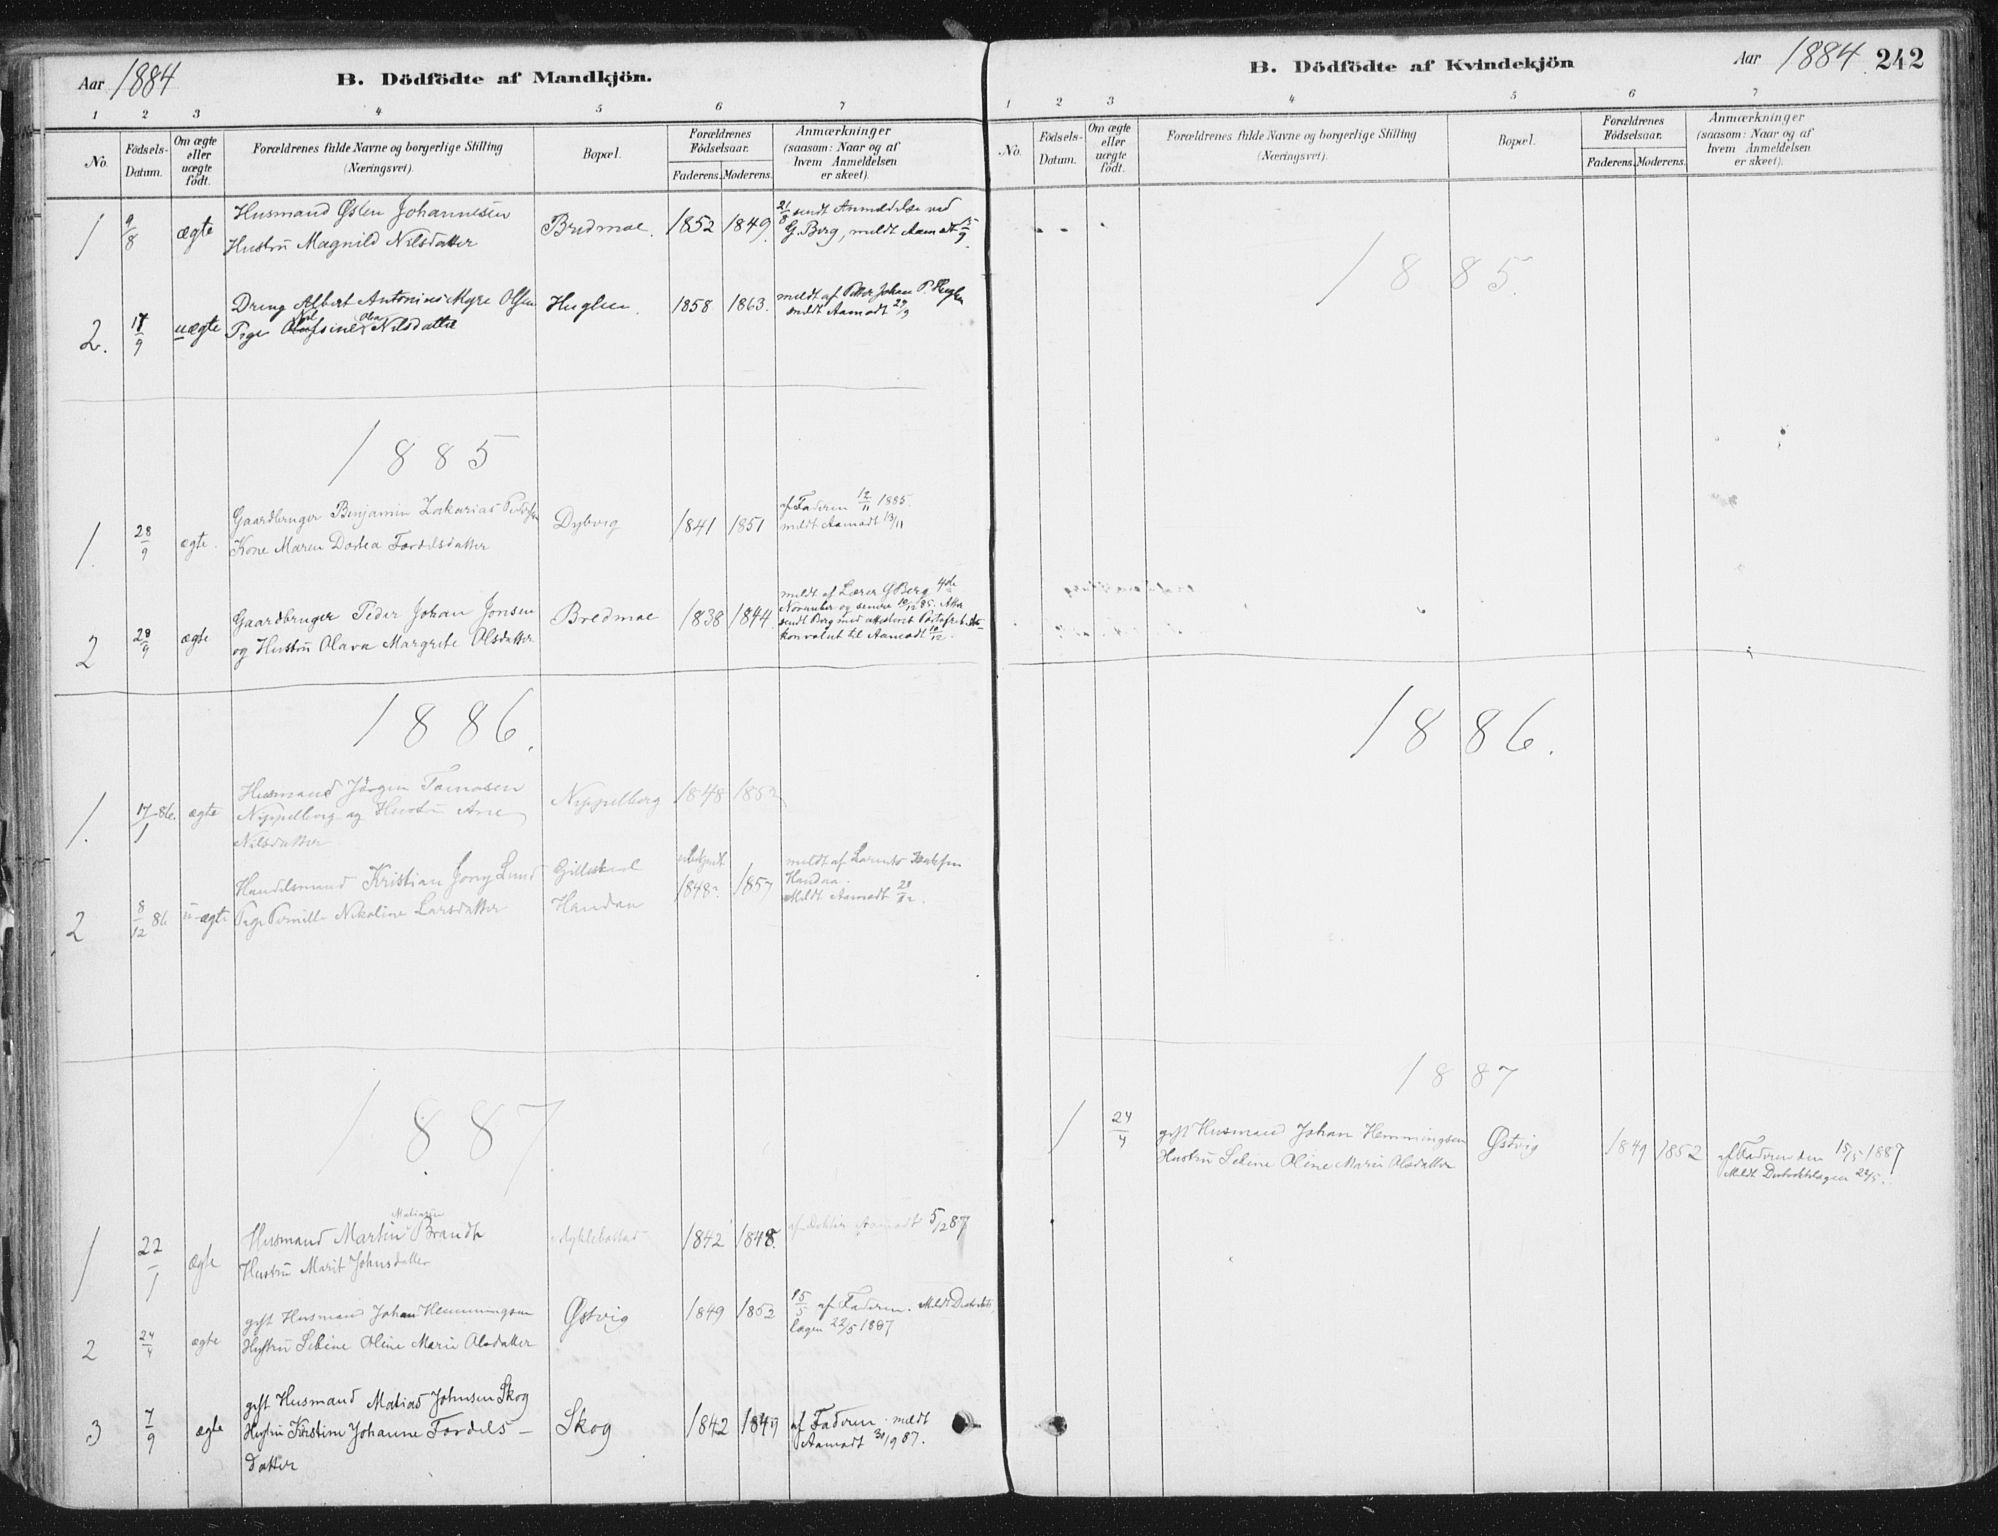 Aar 1884
B. Dödfödte af Mandkjön.
1 2 3 4 5 6 7
No.
Födsels-
Datum.
Om ægte
eller
uægte
født.
Forældrenes fulde Navne og borgerlige Stilling
(Næringsvei).
Bopæl.
Forældrenes
Födselsaar.
Faderens. Moderens.
Anmærkninger
(saasom: Naar og af
hvem Anmeldelsen
er skeet).
1 9/8 ægte
Husmand Østen Johannesen
Hustru Magnild Nilsdatter
Bredmoe. 1852 1849.
21/8 sendt Anmeldelse ved
G. Berg, meldt Aamodt
2. 17/9 uægte
Dreng Albert Antonius Myre Olsen
Pige Nilsdatter
Huglen 1858 1863.
meldt af Petter Johan P. Huglen
meldt Aamodt 29/9
1885
1. 28/9 ægte.
Gaardbruger Benjamin Zakarias Pedersen
Kone Maren Dortea Fordelsdatter
Dybvig 1841 1851
af Faderen 12/11 1885.
meldt Aamodt 13/11
2 28/9 ægte
Gaardbruger Peder Johan Jonsen
og Hustru Olava Margrete Olsdatter
Bredmoe 1838 1844.
meldt af Lærer G Berg 4de
November og senere 10/12 85.
sendt Berg med
konvolut til Aamodt 10/12.
1886.
1. 17/1 86. ægte
Husmand Jörgen Tomasen
Nippelberg og Hustru Ane
Nilsdatter
Nippelberg 1848 1852
2 8/12 86 uægte
Handelsmand Kristian Lund
Pige Pernille Nikoline Larsdatter
Gilleskaal
Handaa
1848. 1857
meldt af Larents
Handaa.
Meldt Aamodt
1887
1 22/1 ægte
Matiasen
Husmand Martin Brandt
Hustru Marit Johnsdatter
1842 1848.
af Doktor Aamodt 5/2 87
2 24/4 ægte
gift Husmand Johan Hemmingsen
Hustru Sebine Oline Marie Olsdatter
Østvig 1849 1852
15/5 af Faderen. Meldt Distrikts-
lægen 22/5 1887
3 7/9 ægte
gift Husmand Matias Johnsen Skog
Hustru Kirstine Johanne Fordels-
datter
Skog 1842 1849
af Faderen. meldt
Aamodt 30/9 87.
B. Dödfödte af Kvindekjön
Aar 1884. 242
1 2 3 4 5 6 7
No.
Födsels-
Datum.
Om ægte
eller
uægte
født.
Forældrenes fulde Navne og borgerlige Stilling
(Næringsvei).
Bopæl.
Forældrenes
Födselsaar.
Faderens. Moderens.
Anmærkninger
(saasom: Naar og af
hvem Anmeldelsen
er skeet).
1885.
1886.
1887
1 24/4
gift Husmand Johan Hemmingsen
Hustru Sebine Oline Marie Olsdatter
Østvig 1849 1852
af Faderen den 15/5 1887
Meldt Distriktslægen 22/5.